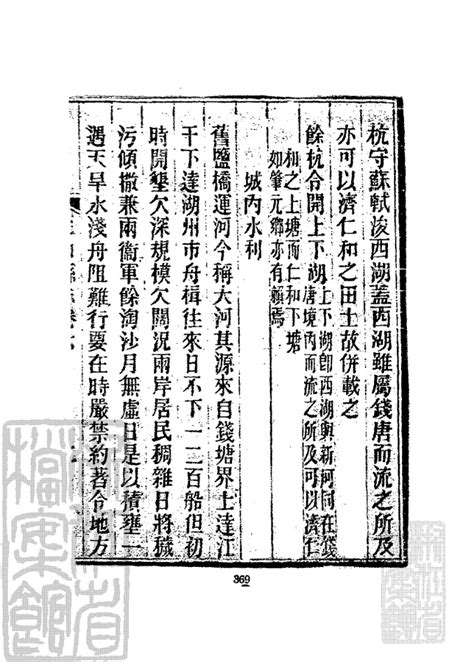 杭守蘇軾浚西湖蓋西湖雖屬錢唐而流之所及
亦可以濟仁和之田土故併載之
餘杭令開上下湖上下湖卽西湖與新河同在錢
唐境內而流之所及可以濟仁
和之上塘而仁和下塘
如筆元鄉亦有賴焉
城內水利
舊鹽橋運河今稱大河其源來自錢塘界上達江
干下達湖州市舟楫往來日不下一二百船但初
時開墾欠深規模欠闊況兩岸居民稠雜日將穢
污傾撒兼兩衞軍餘淘沙月無虛日是以積壅一
遇天旱水淺舟阻難行要在時嚴禁約著令地方
369